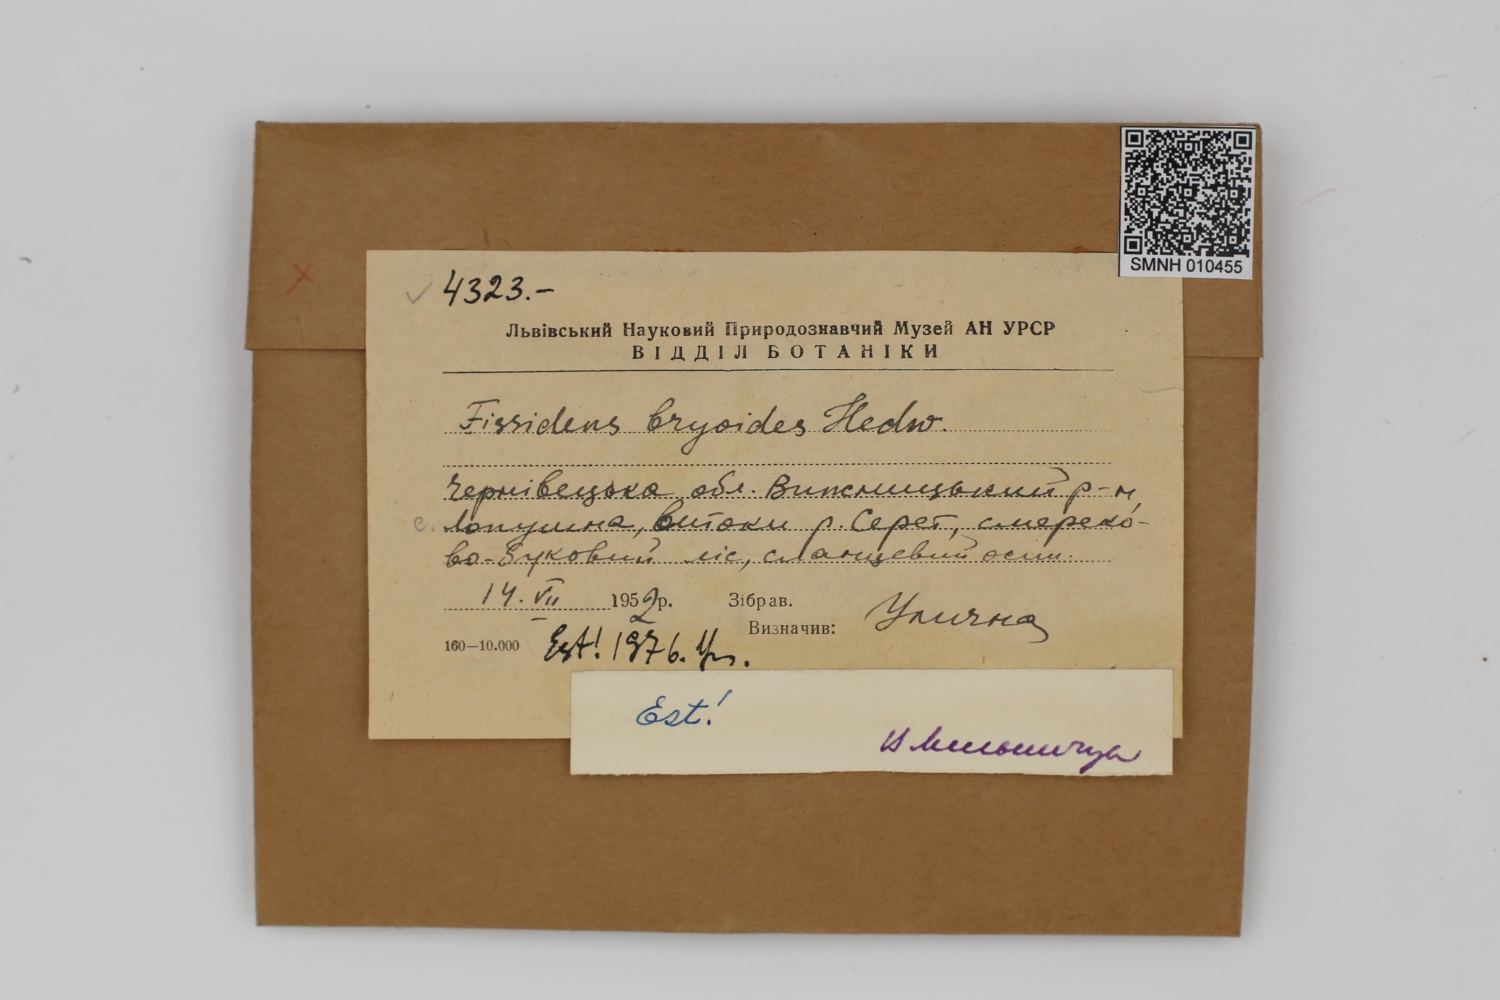 SMNH 010455
✓ 4323.-
Львівський Науковий Природознавчий Музей АН УРСР
ВІДДІЛ БОТАНІКИ
Fissidens bryoides Hedw.
Чернівецька обл. Вижницький р-н,
с. Лопушна, витоки р. Серет, смереко-
во-буковий ліс, сланцевий осип.
14. VII 1952р. Зібрав.
Визначив: Улична
160—10.000 Est! 1976. Ул.
Est!
В Мельничук